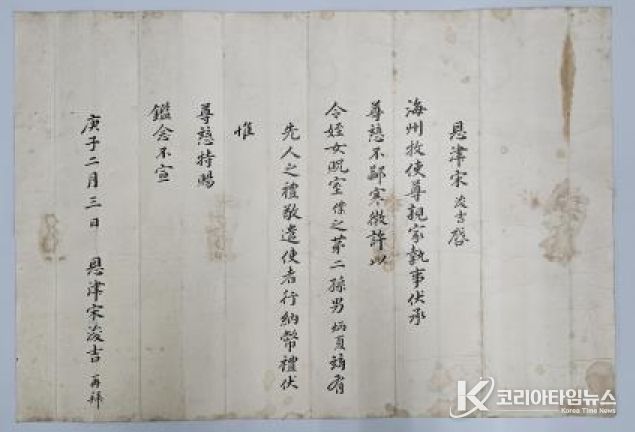 恩津宋浚吉啓
海州牧使尊親家執事伏承
尊慈不鄙寒微許以
令姪女貺室僕之第二孫男炳夏玆有
先人之禮敬遣使者行納幣禮伏
惟
尊慈特賜
鑑念不宣
庚子二月三日 恩津宋浚吉 再拜
코리아타임뉴스
Korea Time News